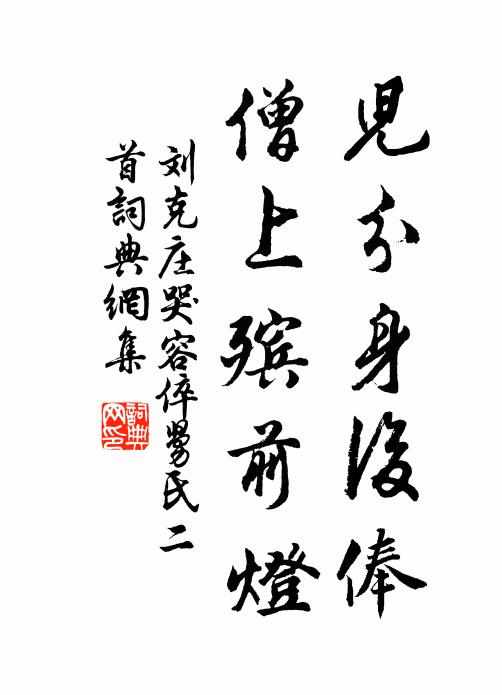 兒分身後俸
僧上殡前燈
刘克庄哭容倅舅氏二
首詞典網集
詞典网印